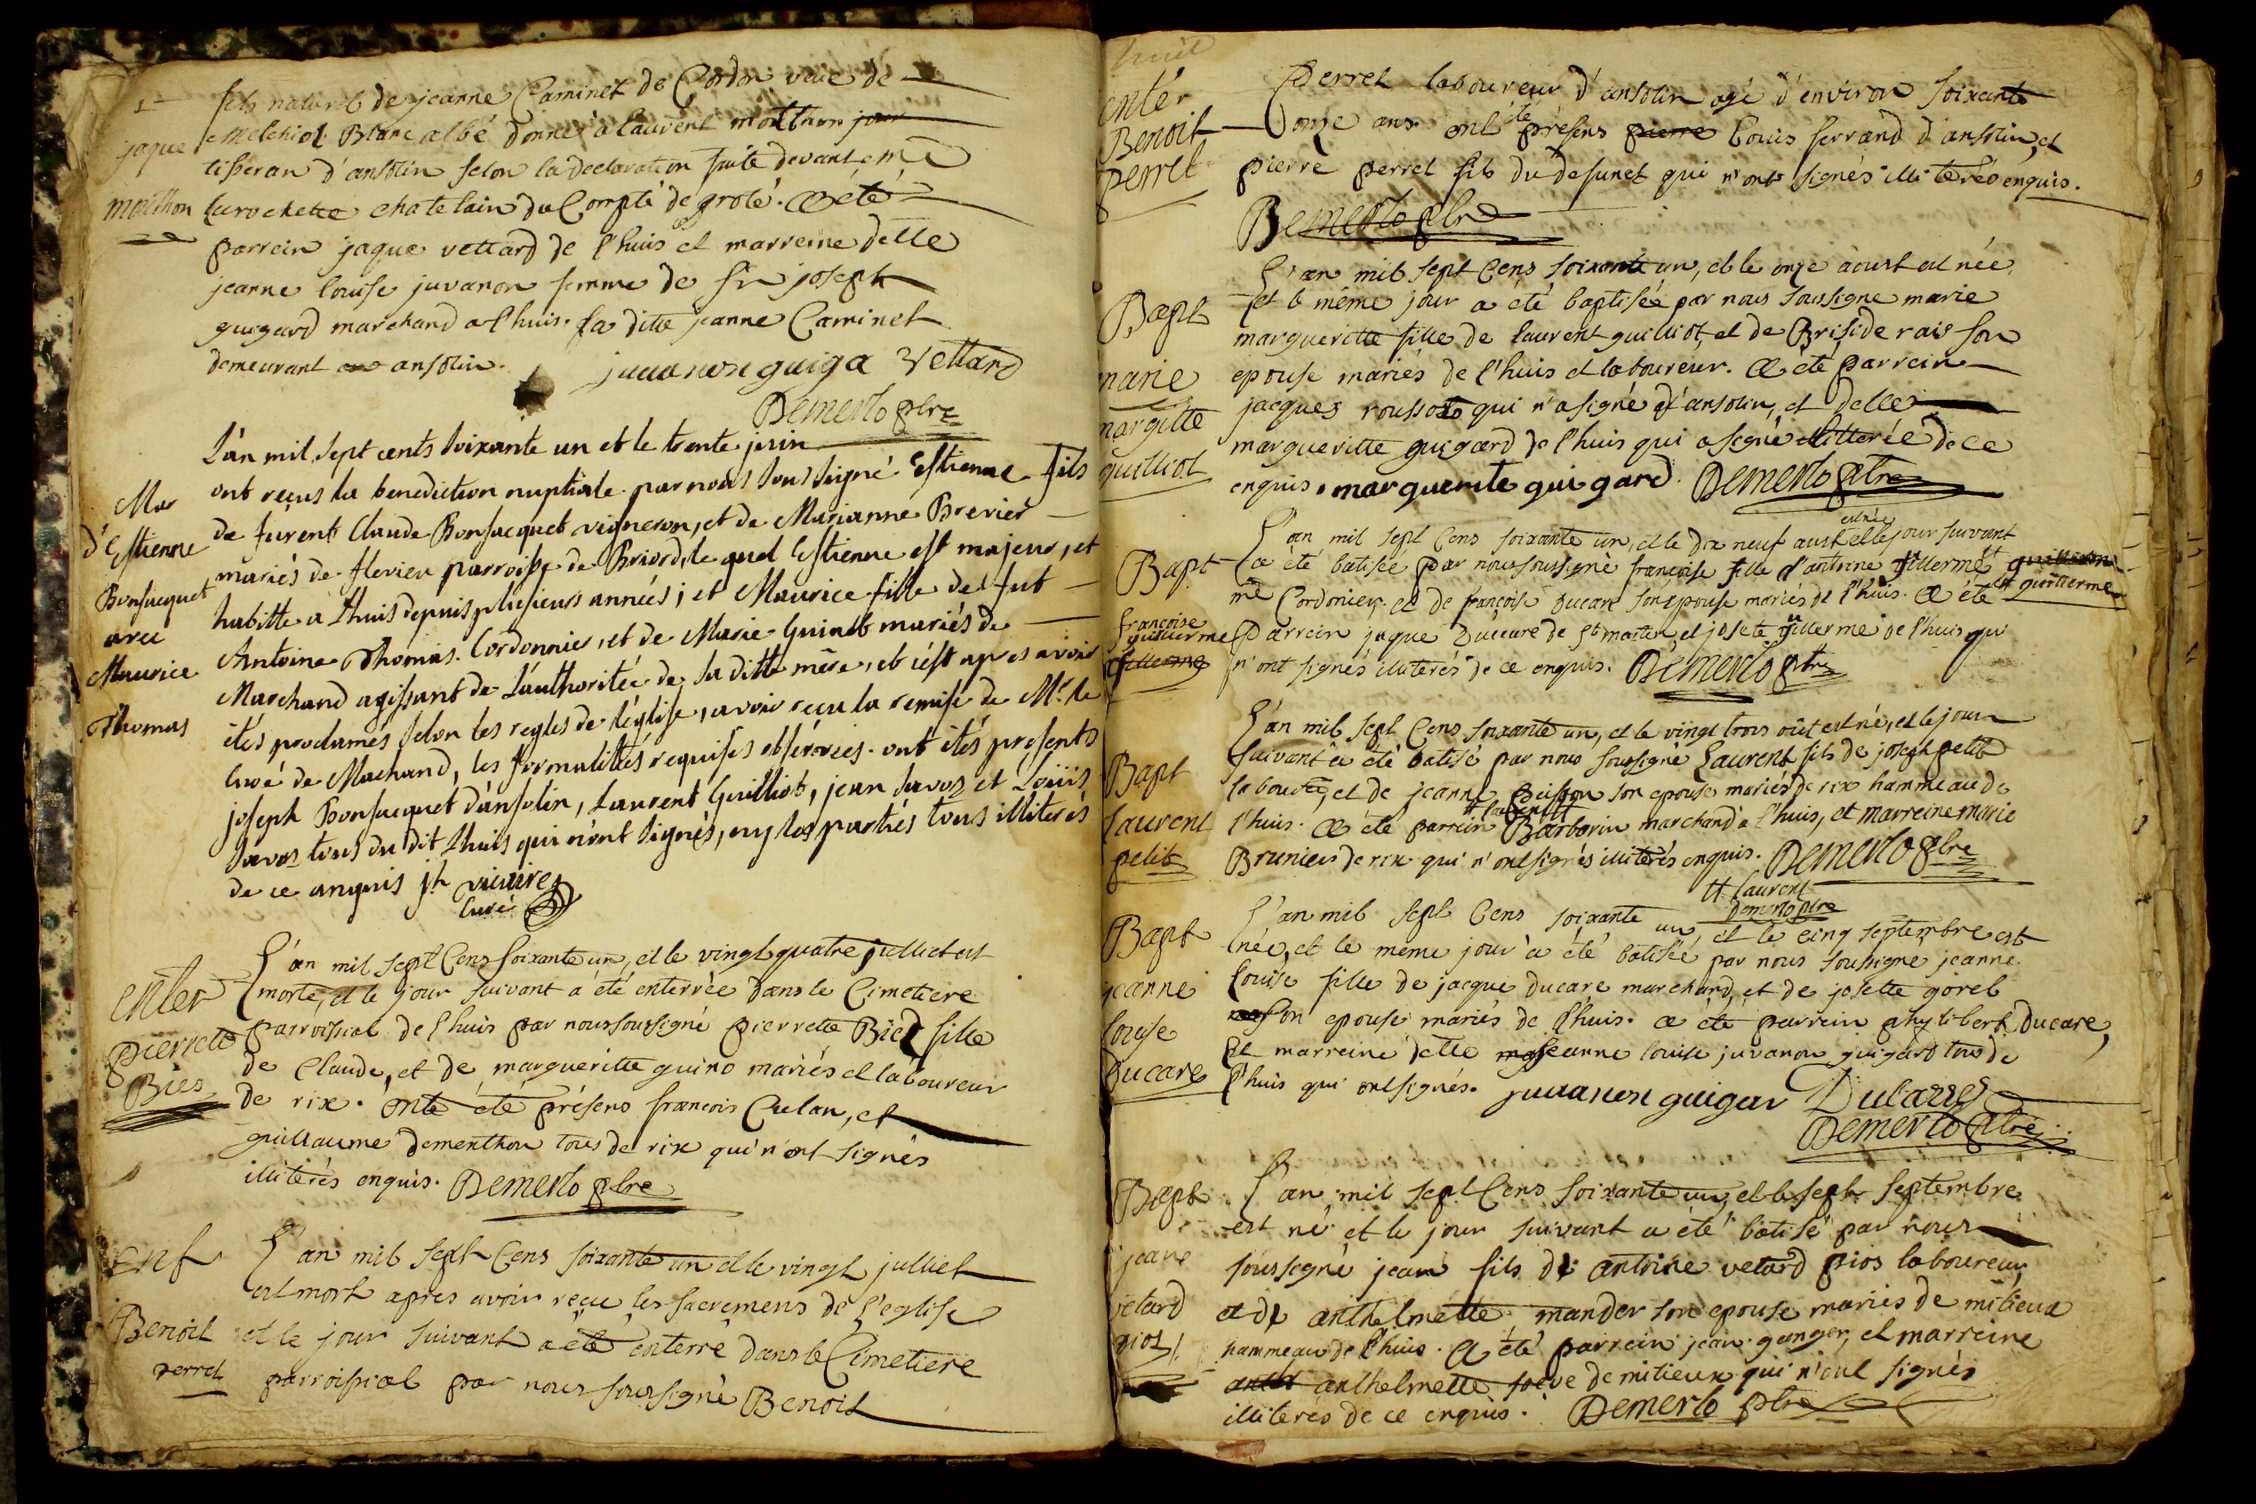 fils naturel de jeanne Caminet de Cordon veuve de
jaque
Melchiol Blanc albé donné a laurent moithon
tisseran d'ansolin selon la declaration faite devant me
moithon
larochette chatelain du Compté de grolé. a été
parrein jaque vettard de l'huis et marreine delle
jeanne louise juvanon femme de sr joseph
guigard marchand a l'huis. la ditte jeanne Caminet
demeurant ansolin.
juuanon guiga vettard
Demerlo ptre
L'an mil sept cents soixante un et le trente juin
ont reçus la benediction nuptiale par nous sous signé Estienne fils
de furent Claude Bonjacquet vigneron, et de Marianne Brevier
mariés de flevieu parroisse de Briord, le quel Estienne est majeur, et
habitte a Lhuis depuis plusieurs années; et Maurice fille de fut
Antoine Thomas Cordonnier, et de Marie Guinet mariés de
Marchand agissant de L'authoritée de sa ditte mère, et c'est apres avoir
étés proclamés selon les regles de l'église, avoir reçu la remise de Mr. le
Curé de Machand, les formalittés requises observées. ont étés presents
joseph Bonjacquet d'ansolin, Laurent Guilliot, jean Savoz et Loüis
Savoz tous du dit Lhuis qui n'ont signés, ny les partiés tous illiterés
de ce anquis jh vuiires
Curé
Mar
d'Estienne
Bonjacquet
avec
Maurice
Thomas
enter
pierrette
Bied
L'an mil sept Cens soixante un, et le vingt quatre julliet est
morte, et le jour suivant a été enterrée dans le Cimetiere
parroissial de l'huis par nous soussigné pierrette Bied fille
de Claude, et de margueritte guino mariés et laboureur
de rix. Ont été présens francois Culan, et
guillaume dementhon tous de rix qui n'ont signés
illiterés enquis. Demerlo ptre
ent
Benoit
perret
L'an mil sept Cens soixante un et le vingt julliet
est mort apres avoir reçu les sacremens de l'eglise
et le jour suivant a été enterré dans le Cimetiere
parroissial par nous soussigné Benoit
enter
Benoit
perret
perret laboureur d'ansolin agé d'environ soixante
onze ans ont été présens pierre louis ferrand d'ansolin, et
pierre perret fils du défunct qui n'ont signés illiterés enquis.
Demerlo ptre
Bapt
marie
margitte
guilliot
L'an mil sept Cens soixante un, et le onze aoust est née
et le même jour a été baptisée par nous soussigne marie
margueritte fille de laurent guilliot, et de Briside rais son
epouse mariés de l'huis et laboureur. a été parrein
jacques roussot qui n'a signé d'ansolin, et delle
margueritte guigard de l'huis qui a signé illiterée de ce
enquis. marguerite guigard Demerlo ptre
Bapt
françoise
guillerme
L'an mil sept Cens soixante un, et le dix neuf aust est née et le jour suivant
a été batisée par nous soussigné françoise fille d'antoine guillerme
me Cordonier et de françoise ducare son epouse mariés de l'huis. a été
parrein jaque Duccare de st martin, et josete guillerme de l'huis qui
n'ont signés illiterés de ce enquis. Demerlo ptre
Bapt
laurent
petit
L'an mil sept Cens soixante un, et le vingt trois oüt est né, et le jour
suivant a été batisé par nous soussigné Laurent fils de joseph petit
laboure, et de jeanne Buisson son epouse mariés de rix hammeau de
l'huis. a été parrein Barbarin marchand a l'huis, et marreine marie
Brunier de rix qui n'ont signés illiterés enquis. Demerlo ptre
# laurent
Demerlo ptre
Bapt
jeanne
louise
Ducare
L'an mil sept Cens soixante un, et le cinq septembre est
née, et le meme jour a été batisée par nous soussigné jeanne
Louise fille de jacque ducare marchand, et de josette gorel
son epouse mariés de l'huis. a été parrein phylibert ducare,
Et marreine delle jeanne louise juvanon guigard tous de
l'huis qui ont signés. juuanon guigar Ducarre
Demerlo ptre
Bapt
jean
vetard
pios
L'an mil sept Cens soixante un, et le sept septembre
est né et le jour suivant a été batisé par nous
soussigné jean fils de antoine vetard pios laboureur
et de anthelmette mander son epouse mariés de milieux
hammeau de l'huis. a été parrein jean genger, et marreine
anthelmette seve de milieux qui n'ont signés
illiterés de ce enquis. Demerlo ptre